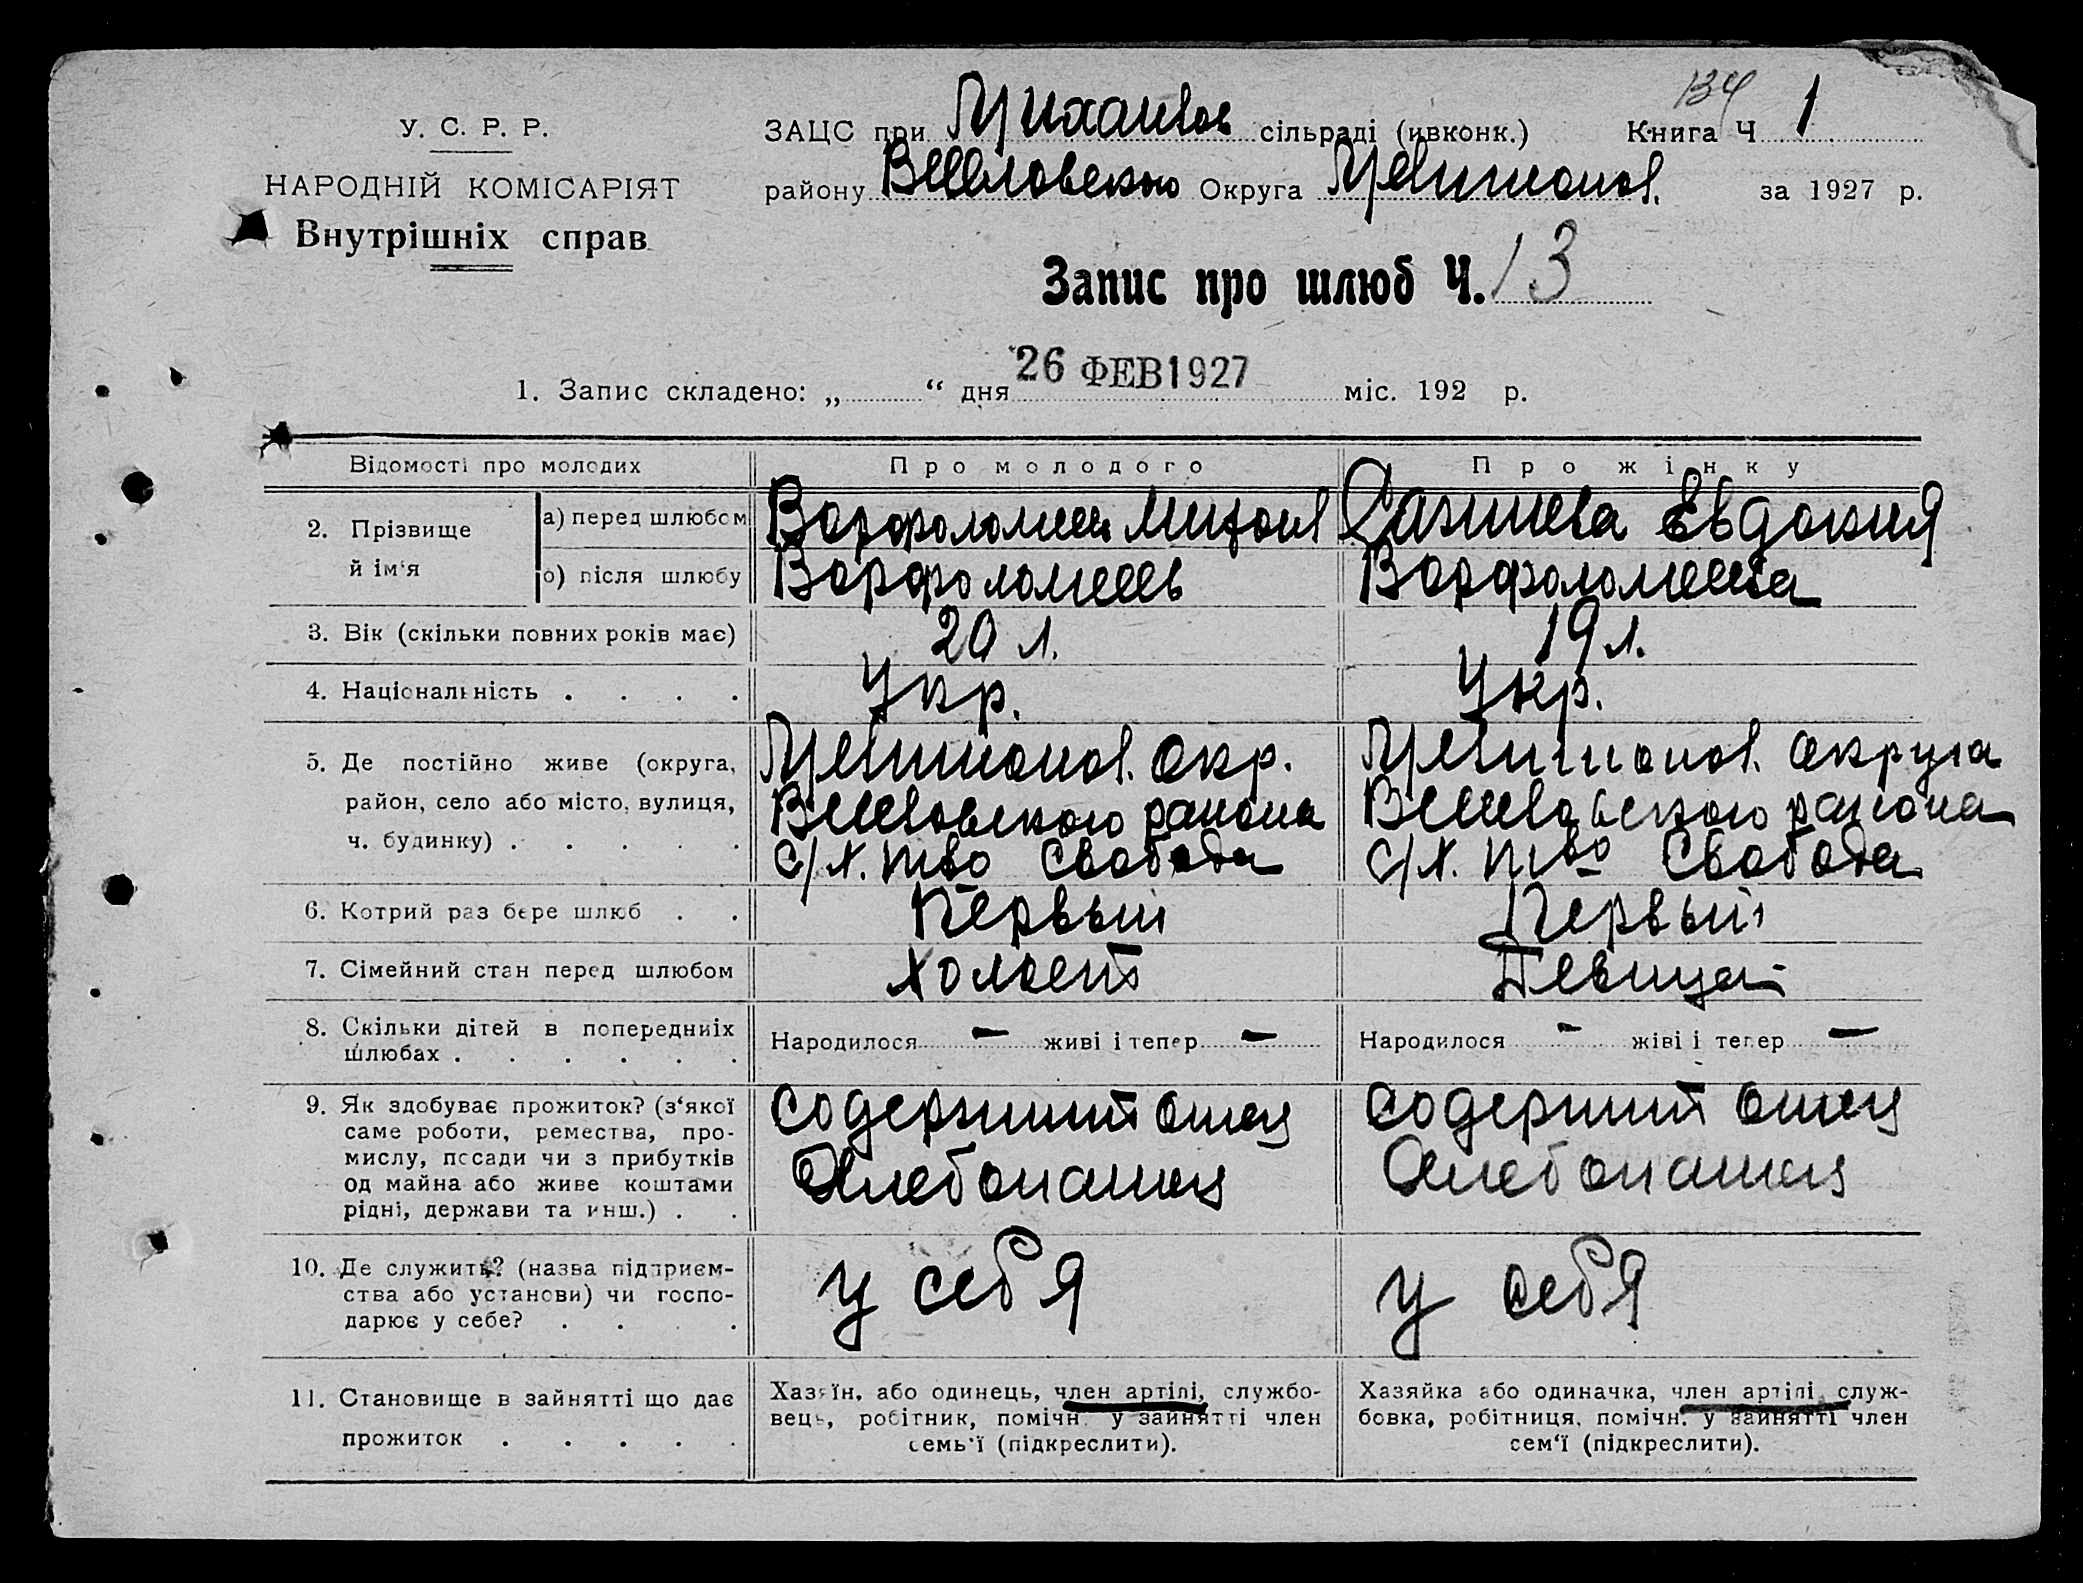 134
У. С. Р. Р.
ЗАЦС при Михайлов сільраді (ивконк.) Книга Ч 1
НАРОДНІЙ КОМІСАРІЯТ
району Веселовского Округа Мелитопол. за 1927 р.
Внутрішніх справ
Запис про шлюб Ч. 13
1. Запис складено: „ “ дня 26 ФЕВ 1927 міс. 192 р.
Відомості про молодих Про молодого Про жінку
2. Прізвище й ім'я
а) перед шлюбом Варфоломеев Евдокия
б) після шлюбу Варфоломеев Варфоломеева
3. Вік (скільки повних років має) 20 л. 19 л.
4. Національність . . . . Укр. Укр.
5. Де постійно живе (округа, Мелитопол. Окр. Мелитопол. Округа
район, село або місто, вулиця, Веселовского района Веселовского района
ч. будинку) . . . . . с/х. тво Свобода с/х. тво Свобода
6. Котрий раз бере шлюб . . Первый Первый
7. Сімейний стан перед шлюбом Холост Девица
8. Скільки дітей в попередніх Народилося — живі і тепер — Народилося - жіві і тепер —
шлюбах . . . . . .
9. Як здобуває прожиток? (з'якої содержит отец содержит отец
саме роботи, ремества, про-
мислу, посади чи з прибутків Хлебопашец Хлебопашец
од майна або живе коштами
рідні, держави та инш.) . .
10. Де служить? (назва підприєм- у себя у себя
ства або установи) чи госпо-
дарює у себе? . . . .
11. Становище в зайнятті що дає Хазяїн, або одинець, член артілі, службо- Хазяйка або одиначка, член артілі служ-
вець, робітник, помічн. у зайнятті член бовка, робітниця, помічн. у зайнятті член
прожиток . . . . . семь'ї (підкреслити). сем'ї (підкреслити).